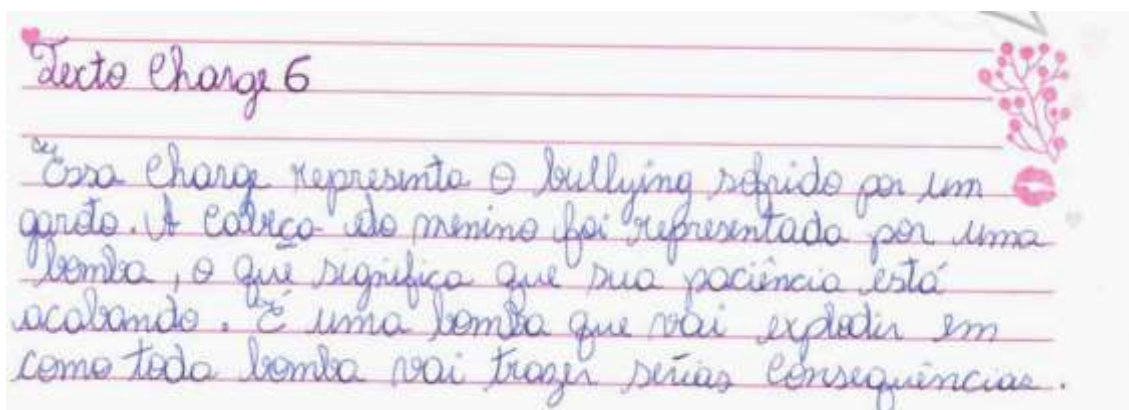 Texto Charge 6
Essa Charge representa o bullying sofrido por um
garoto. A cabeça do menino foi representada por uma
bomba, o que significa que sua paciência está
acabando. É uma bomba que vai explodir em
como toda bomba vai trazer sérias consequências.